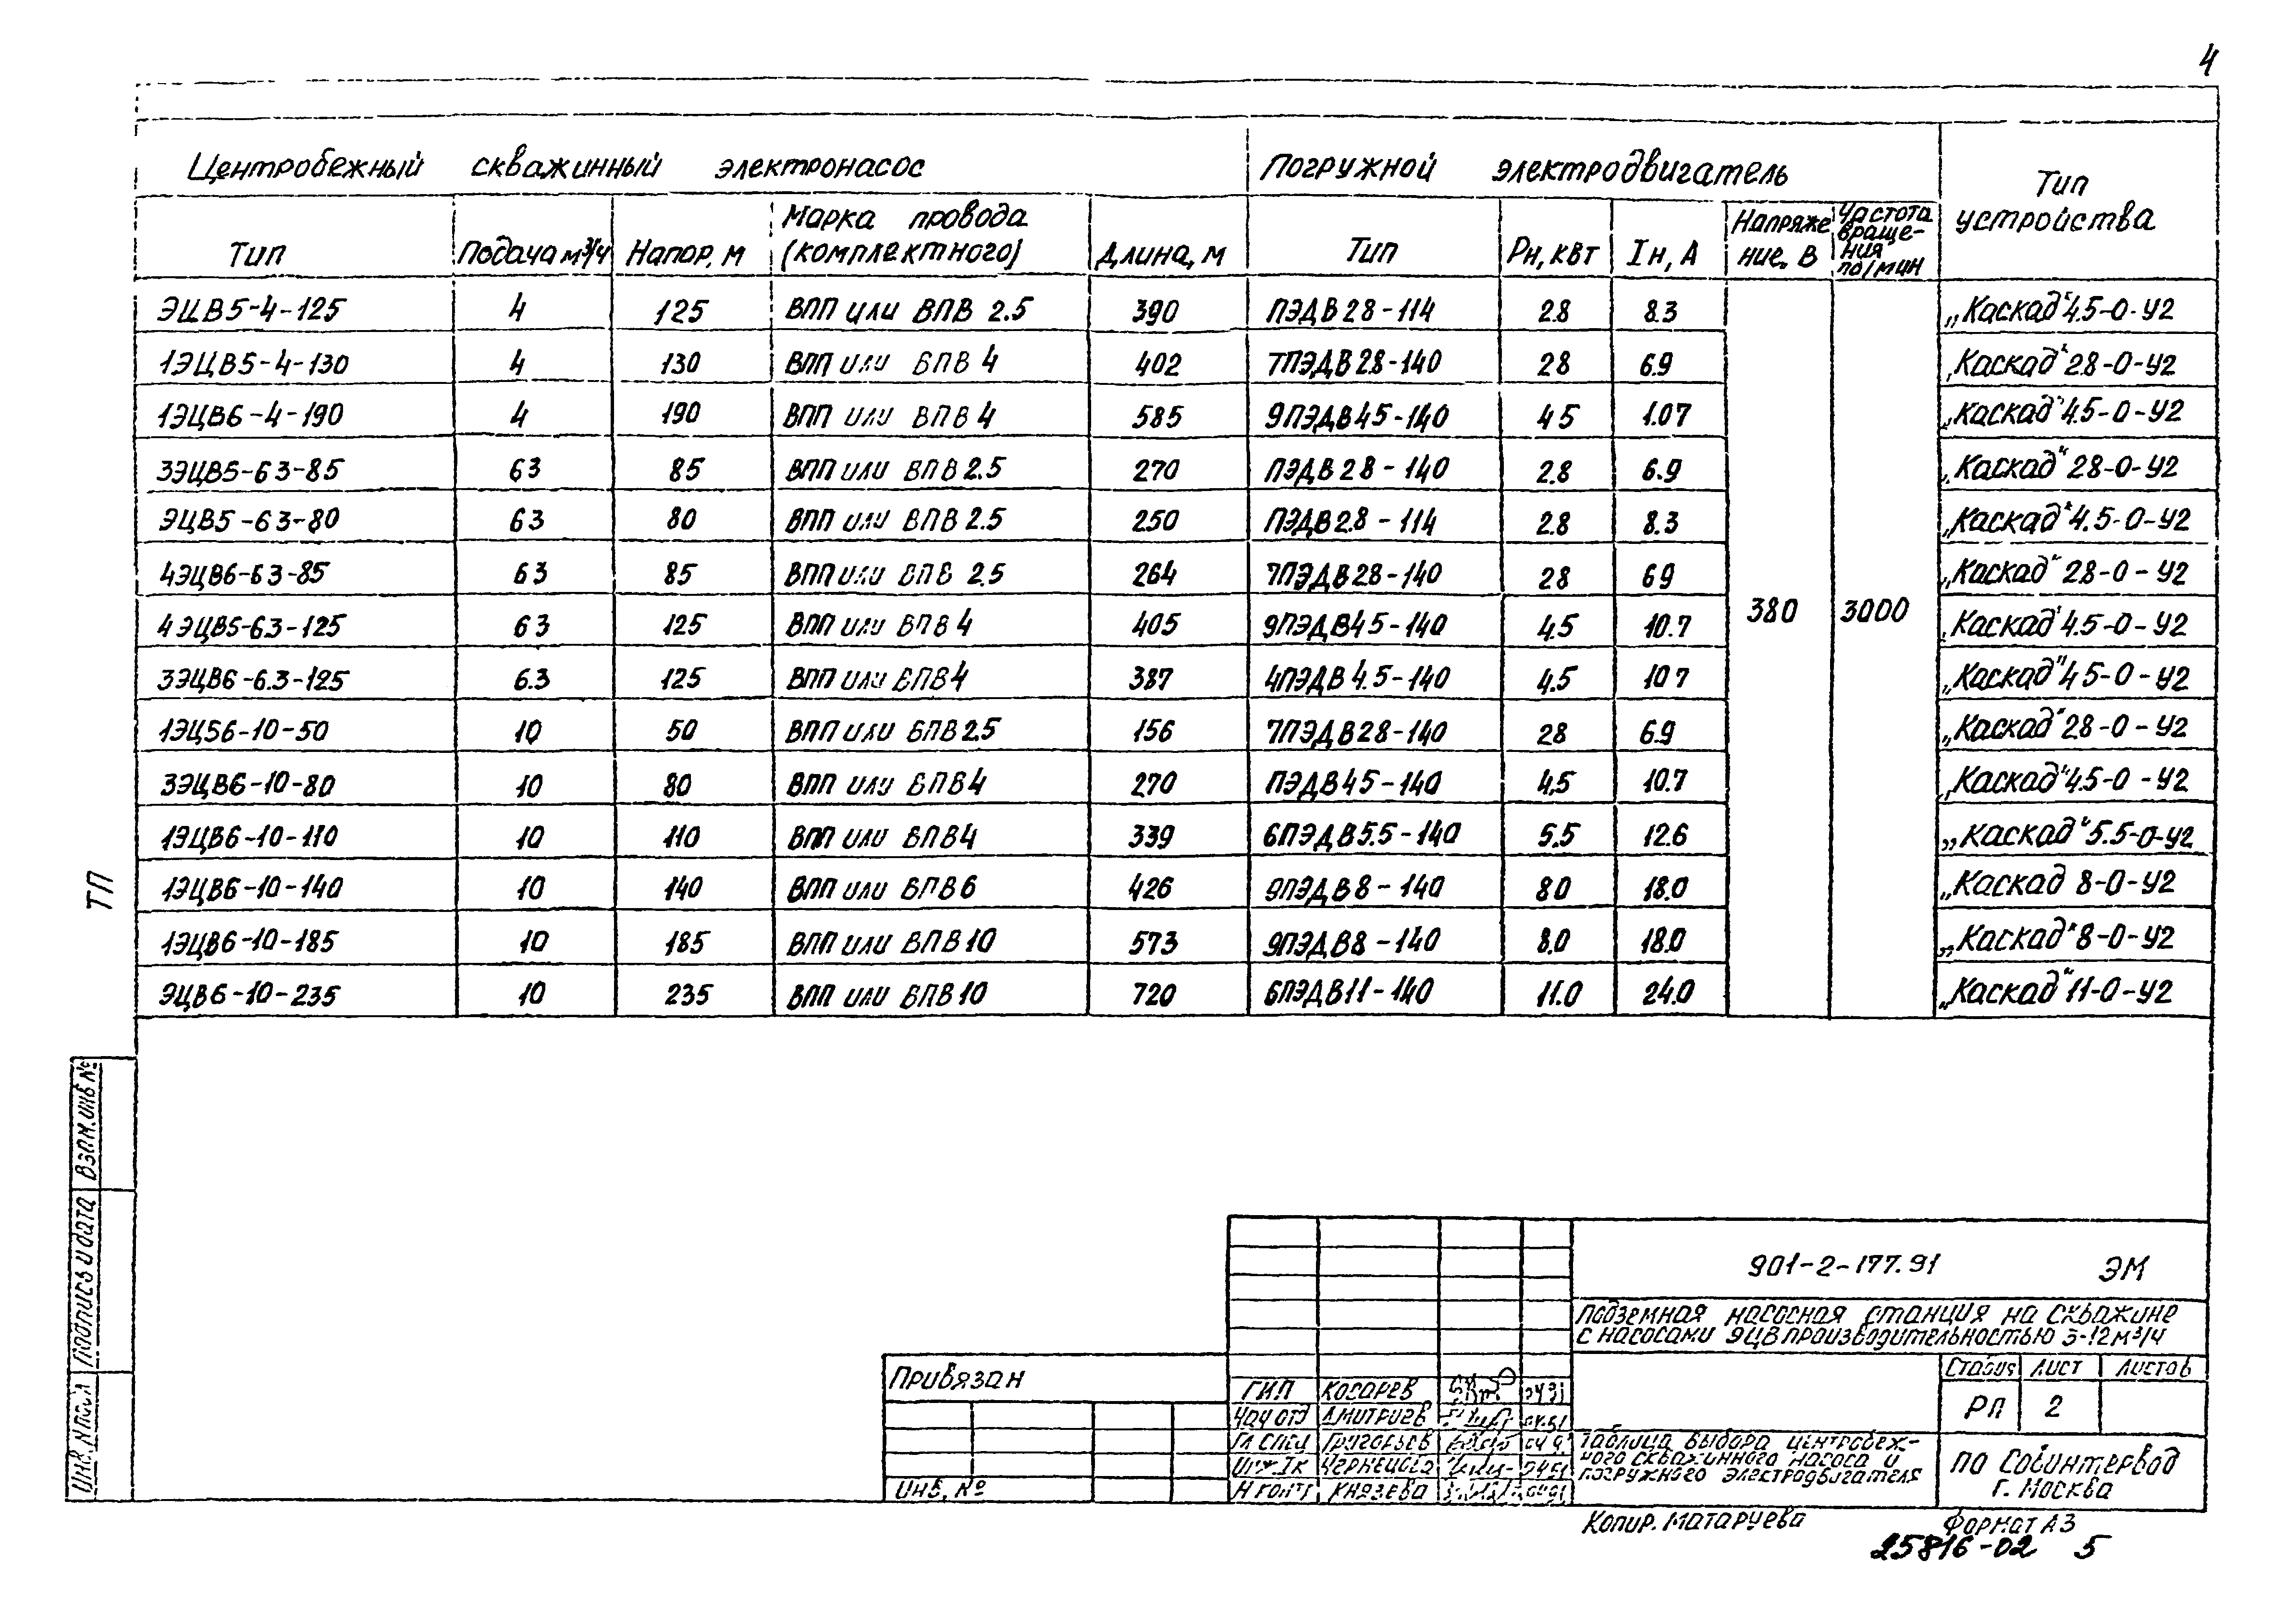 4
Центробежный скважинный электронасос
Погружной электродвигатель
Тип устройства
Тип
Подача м³/ч
Напор, м
Марка провода (комплектного)
Длина, м
Тип
Рн, квт
Iн, А
Напряжение, В
Частота вращения по/мин
ЭЦВ5-4-125 4 125 ВПП или ВПВ 2.5 390 ПЭДВ28-114 2.8 8.3 „Каскад"4.5-0-У2
1ЭЦВ5-4-130 4 130 ВПП или ВПВ 4 402 7ПЭДВ28-140 28 6.9 „Каскад"28-0-У2
1ЭЦВ6-4-190 4 190 ВПП или ВПВ 4 585 9ПЭДВ45-140 45 1.07 „Каскад"4.5-0-У2
3ЭЦВ5-63-85 63 85 ВПП или ВПВ 2.5 270 ПЭДВ28-140 2.8 6.9 „Каскад"28-0-У2
ЭЦВ5-63-80 63 80 ВПП или ВПВ 2.5 250 ПЭДВ2.8-114 2.8 8.3 „Каскад"4.5-0-У2
4ЭЦВ6-63-85 63 85 ВПП или ВПВ 2.5 264 7ПЭДВ28-140 28 69 „Каскад"28-0-У2
4ЭЦВ5-63-125 63 125 ВПП или ВПВ 4 405 9ПЭДВ45-140 4.5 10.7 „Каскад"4.5-0-У2
3ЭЦВ6-6.3-125 6.3 125 ВПП или ВПВ4 387 4ПЭДВ4.5-140 4.5 10 7 „Каскад"45-0-У2
1ЭЦ56-10-50 10 50 ВПП или ВПВ2.5 156 7ПЭДВ28-140 28 6.9 „Каскад"28-0-У2
3ЭЦВ6-10-80 10 80 ВПП или ВПВ4 270 ПЭДВ45-140 4,5 10.7 „Каскад"4.5-0-У2
1ЭЦВ6-10-110 10 110 ВПП или ВПВ4 339 6ПЭДВ5.5-140 5.5 12.6 „Каскад"5.5-0-У2
1ЭЦВ6-10-140 10 140 ВПП или ВПВ6 426 9ПЭДВ8-140 80 18.0 „Каскад 8-0-У2
1ЭЦВ6-10-185 10 185 ВПП или ВПВ10 573 9ПЭДВ8-140 8.0 18.0 „Каскад"8-0-У2
ЭЦВ6-10-235 10 235 ВПП или ВПВ10 720 6ПЭДВ11-140 11.0 24.0 „Каскад"11-0-У2
380
3000
ТП
Взам.инв №
Подпись и дата
Инв. № подл
Привязан
Инв. №
901-2-177.91 ЭМ
Подземная насосная станция на скважине
с насосами ЭЦВ производительностью 3-12м³/ч
ГИП Косарев
Нач отд Дмитриев
Гл спец Григорьев
Инж.Iк Чернецова
Н контр Князева
Таблица выбора центробеж-
ного скважинного насоса и
погружного электродвигателя
Стадия Лист Листов
РП 2
ПО Совинтервод
г. Москва
Копир. Матаруева
Формат А3
25816-02 5